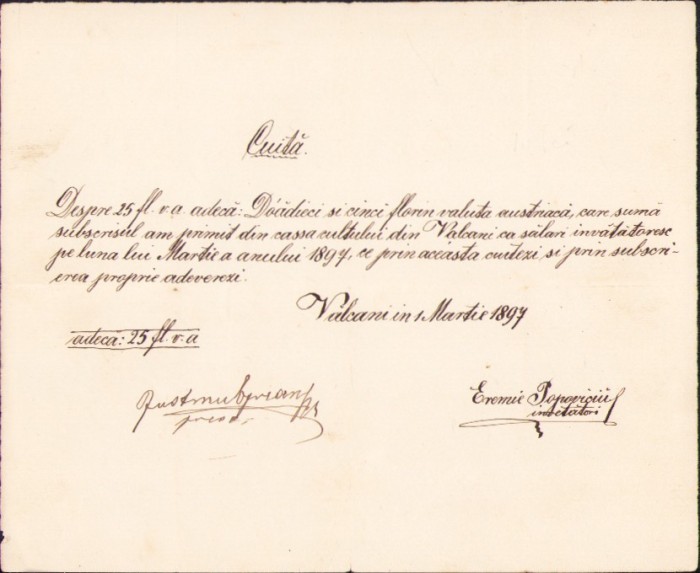 Cuită.
Despre 25 fl. v. a. adecă: Doădieci si cinci florin valuta austriacă, care sumă
subscrisul am primit din cassa cultului din Valcani ca sălari invătătoresc
pe luna lui Martie a anului 1897, ce prin aceasta cuitezi si prin subscri-
erea proprie adeverezi.
Válcani in 1 Martie 1897
adecă: 25 fl. v. a
Eremie Popoviciu
invetători